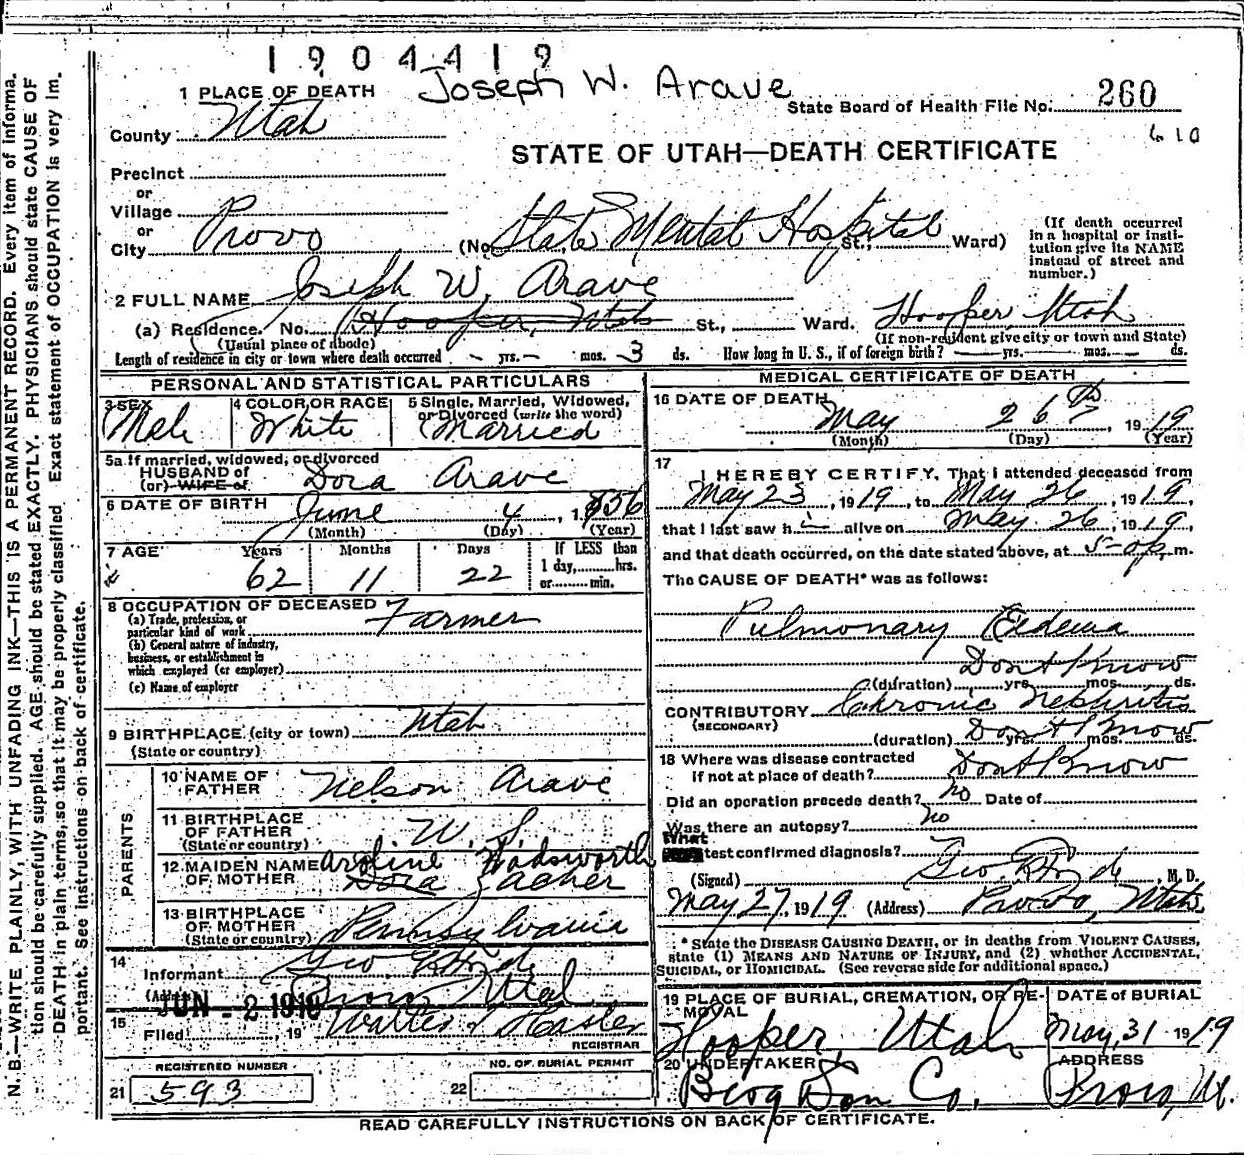 1904419
Joseph W. Arave
1 PLACE OF DEATH
State Board of Health File No. 260
County Utah
610
STATE OF UTAH—DEATH CERTIFICATE
Precinct
or
Village
or
City Provo (No. State Mental Hospital St., Ward)
(If death occurred in a hospital or institution give its NAME instead of street and number.)
2 FULL NAME Joseph W. Arave
(a) Residence. No. Hooper, Utah St., Ward. Hooper, Utah
(Usual place of abode) (If non-resident give city or town and State)
Length of residence in city or town where death occurred - yrs. - mos. 3 ds. How long in U. S., if of foreign birth? yrs. mos. ds.
PERSONAL AND STATISTICAL PARTICULARS
3 SEX Male
4 COLOR OR RACE White
5 Single, Married, Widowed, or Divorced (write the word) Married
5a If married, widowed, or divorced
HUSBAND of
(or) WIFE of Dora Arave
6 DATE OF BIRTH June 4, 1856
(Month) (Day) (Year)
7 AGE Years 62 Months 11 Days 22
If LESS than
1 day, hrs.
or min.
8 OCCUPATION OF DECEASED Farmer
(a) Trade, profession, or
particular kind of work
(b) General nature of industry,
business, or establishment in
which employed (or employer)
(c) Name of employer
9 BIRTHPLACE (city or town) Utah
(State or country)
PARENTS
10 NAME OF FATHER Nelson Arave
11 BIRTHPLACE OF FATHER U. S.
(State or country)
12 MAIDEN NAME OF MOTHER aroline Wadsworth
Dora Zacher
13 BIRTHPLACE OF MOTHER Pennsylvania
(State or country)
14
Informant Geo
(Address) Provo Utah
JUN - 2 1919
15 Filed , 19 Walter Hasler
REGISTRAR
REGISTERED NUMBER
21 593
NO. OF BURIAL PERMIT
22
MEDICAL CERTIFICATE OF DEATH
16 DATE OF DEATH May 26th, 1919
(Month) (Day) (Year)
17 I HEREBY CERTIFY, That I attended deceased from
May 23, 1919, to May 26, 1919,
that I last saw h i alive on May 26, 1919,
and that death occurred, on the date stated above, at 5-0 p. m.
The CAUSE OF DEATH* was as follows:
Pulmonary Oedema
Don't Know
(duration) yrs. mos. ds.
CONTRIBUTORY Chronic Nephritis
(SECONDARY)
(duration) Don't Know yrs. mos. ds.
18 Where was disease contracted
if not at place of death? Don't Know
Did an operation precede death? no Date of
Was there an autopsy? no
What test confirmed diagnosis?
(Signed) Geo , M. D.
May 27, 1919 (Address) Provo, Utah
* State the DISEASE CAUSING DEATH, or in deaths from VIOLENT CAUSES,
state (1) MEANS AND NATURE OF INJURY, and (2) whether ACCIDENTAL,
SUICIDAL, or HOMICIDAL. (See reverse side for additional space.)
19 PLACE OF BURIAL, CREMATION, OR REMOVAL
Hooper Utah
DATE of BURIAL
May, 31 1919
20 UNDERTAKER
Berg Son Co.
ADDRESS
Provo, Ut.
READ CAREFULLY INSTRUCTIONS ON BACK OF CERTIFICATE.
N. B.—WRITE PLAINLY, WITH UNFADING INK—THIS IS A PERMANENT RECORD. Every item of informa-
tion should be carefully supplied. AGE should be stated EXACTLY. PHYSICIANS should state CAUSE OF
DEATH in plain terms, so that it may be properly classified. Exact statement of OCCUPATION is very im-
portant. See instructions on back of certificate.